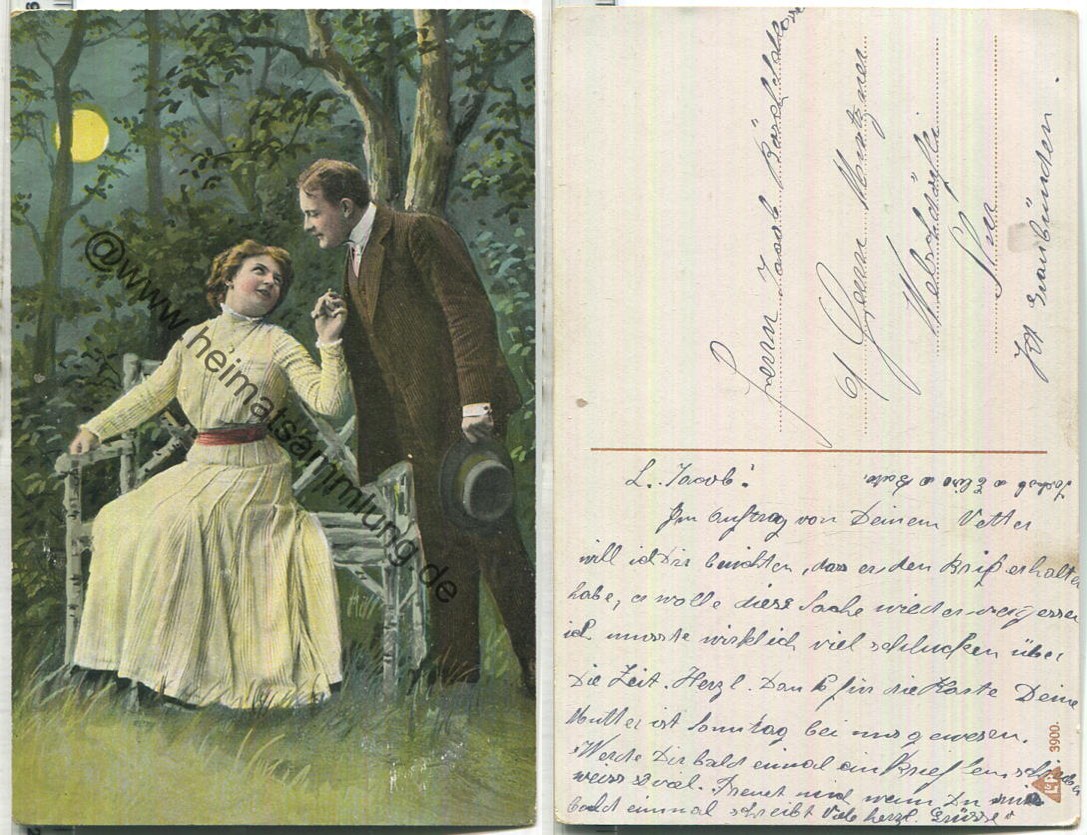 @www.heimatsammlung.de
Herrn Jacob
p/ Herrn
Welschdörfli
Chur
Kt Graubünden
L. Jacob!
Im Auftrag von Deinem Vetter
will ich Dir berichten, das er den Brif erhalten
habe, er wolle diese Sache wieder vergessen
ich musste wirklich viel schlucken über
Die Zeit. Herzl. Dank für die Karte Deine
Mutter ist Sonntag bei uns gewesen.
Werde Dir bald einmal ein Brief
weiss so viel. Freut mich wenn Du mir
bald einmal schreibst Viele herzl. Grüsse
3900.